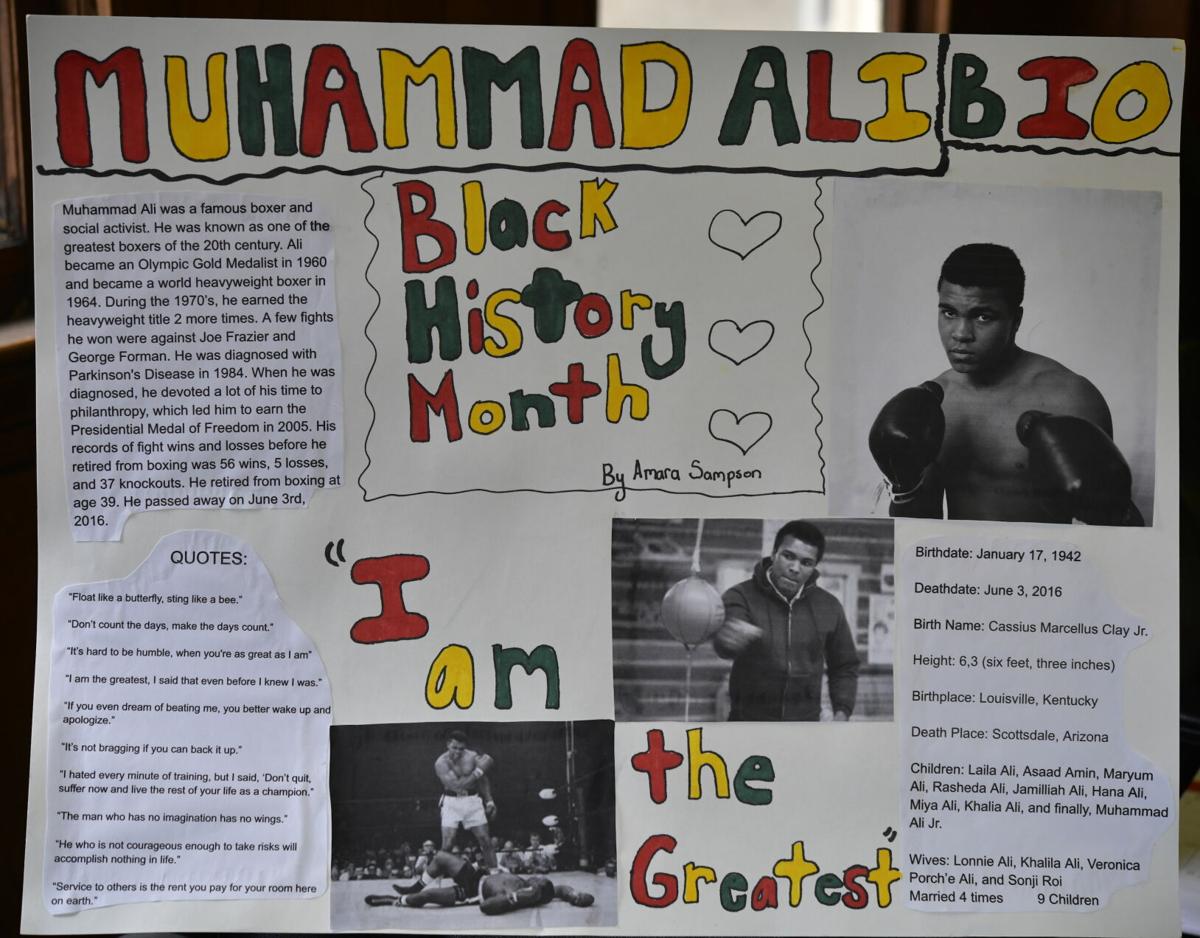 MUHAMMAD ALI BIO
Muhammad Ali was a famous boxer and
social activist. He was known as one of the
greatest boxers of the 20th century. Ali
became an Olympic Gold Medalist in 1960
and became a world heavyweight boxer in
1964. During the 1970's, he earned the
heavyweight title 2 more times. A few fights
he won were against Joe Frazier and
George Forman. He was diagnosed with
Parkinson's Disease in 1984. When he was
diagnosed, he devoted a lot of his time to
philanthropy, which led him to earn the
Presidential Medal of Freedom in 2005. His
records of fight wins and losses before he
retired from boxing was 56 wins, 5 losses,
and 37 knockouts. He retired from boxing at
age 39. He passed away on June 3rd,
2016.
Black
History
Month
By Amara Sampson
QUOTES:
"Float like a butterfly, sting like a bee."
"Don't count the days, make the days count."
"It's hard to be humble, when you're as great as I am"
"I am the greatest, I said that even before I knew I was."
"If you even dream of beating me, you better wake up and
apologize."
"It's not bragging if you can back it up."
"I hated every minute of training, but I said, 'Don't quit,
suffer now and live the rest of your life as a champion."
"The man who has no imagination has no wings."
"He who is not courageous enough to take risks will
accomplish nothing in life."
"Service to others is the rent you pay for your room here
on earth."
"I
am
the
Greatest"
Birthdate: January 17, 1942
Deathdate: June 3, 2016
Birth Name: Cassius Marcellus Clay Jr.
Height: 6,3 (six feet, three inches)
Birthplace: Louisville, Kentucky
Death Place: Scottsdale, Arizona
Children: Laila Ali, Asaad Amin, Maryum
Ali, Rasheda Ali, Jamilliah Ali, Hana Ali,
Miya Ali, Khalia Ali, and finally, Muhammad
Ali Jr.
Wives: Lonnie Ali, Khalila Ali, Veronica
Porch'e Ali, and Sonji Roi
Married 4 times 9 Children